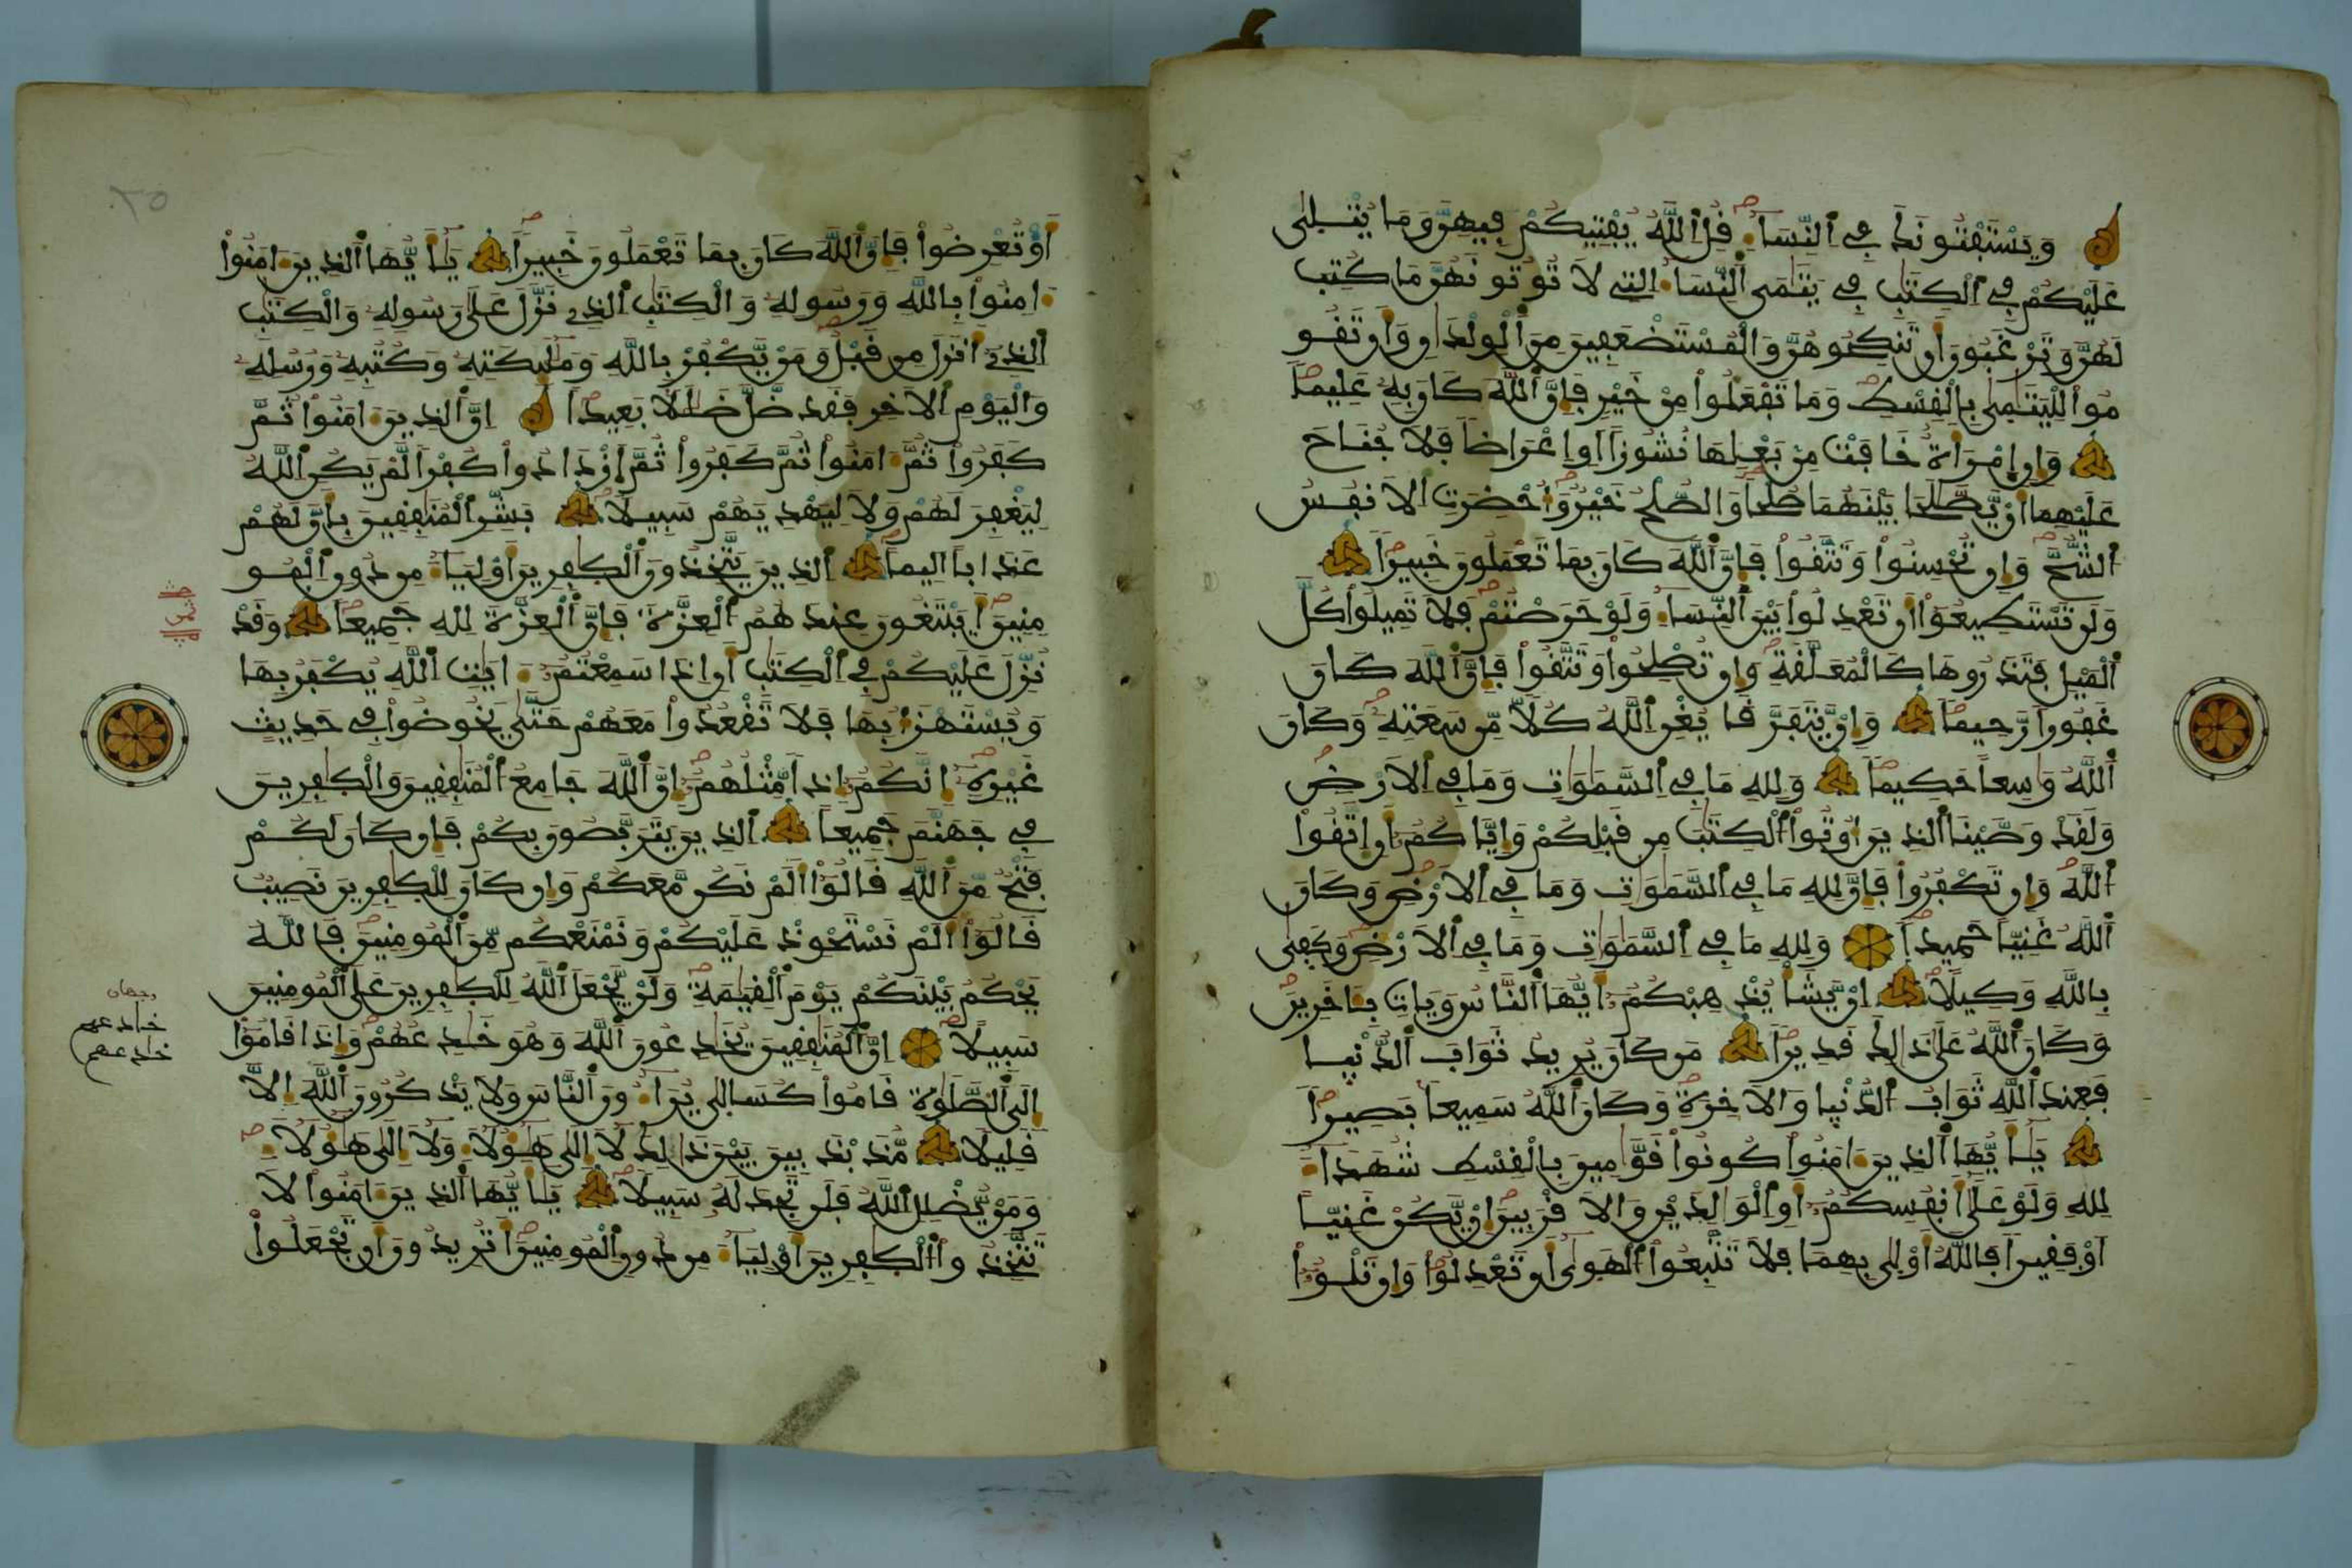 وَيَسْتَفْتُونَكَ فِے اِ۬لنِّسَآءِ قُلِ اِ۬للَّهُ يُفْتِيكُمْ فِيهِنَّ وَمَا يُتْلَىٰ
عَلَيْكُمْ فِے اِ۬لْكِتَٰبِ فِے يَتَٰمَى اَ۬لنِّسَآءِ اِ۬لتِے لَا تُوتُونَهُنَّ مَا كُتِبَ
لَهُنَّ وَتَرْغَبُونَ أَن تَنكِحُوهُنَّ وَالْمُسْتَضْعَفِينَ مِنَ اَ۬لْوِلْدَٰنِ وَأَن تَقُو
مُواْ لِلْيَتَٰمَىٰ بِالْقِسْطِ وَمَا تَفْعَلُواْ مِنْ خَيْرٍ فَإِنَّ اَ۬للَّهَ كَانَ بِهِۦ عَلِيماً
وَإِنِ اِ۪مْرَأَةٌ خَافَتْ مِنۢ بَعْلِهَا نُشُوزاً اَوِ اِعْرَاضاً فَلَا جُنَاحَ
عَلَيْهِمَآ أَنْ يَّصَّٰلَحَا بَيْنَهُمَا صُلْحاً وَالصُّلْحُ خَيْرٌ وَأُحْضِرَتِ اِ۬لَانفُسُ
اُ۬لشُّحَّ وَإِن تُحْسِنُواْ وَتَتَّقُواْ فَإِنَّ اَ۬للَّهَ كَانَ بِمَا تَعْمَلُونَ خَبِيراً
وَلَن تَسْتَطِيعُوٓاْ أَن تَعْدِلُواْ بَيْنَ اَ۬لنِّسَآءِ وَلَوْ حَرَصْتُمْ فَلَا تَمِيلُواْ كُلَّ
اَ۬لْمَيْلِ فَتَذَرُوهَا كَالْمُعَلَّقَةِ وَإِن تُصْلِحُواْ وَتَتَّقُواْ فَإِنَّ اَ۬للَّهَ كَانَ
غَفُوراً رَّحِيماً وَإِنْ يَّتَفَرَّقَا يُغْنِ اِ۬للَّهُ كُلّاً مِّن سَعَتِهِۦ وَكَانَ
اَ۬للَّهُ وَٰسِعاً حَكِيماً وَلِلهِ مَا فِے اِ۬لسَّمَٰوَٰتِ وَمَا فِے اِ۬لَارْضِ
وَلَقَدْ وَصَّيْنَا اَ۬لذِينَ أُوتُواْ اُ۬لْكِتَٰبَ مِن قَبْلِكُمْ وَإِيَّاكُمُۥٓ أَنِ اِ۪تَّقُواْ
اُ۬للَّهَ وَإِن تَكْفُرُواْ فَإِنَّ لِلهِ مَا فِے اِ۬لسَّمَٰوَٰتِ وَمَا فِے اِ۬لَارْضِ وَكَانَ
اَ۬للَّهُ غَنِيّاً حَمِيداً وَلِلهِ مَا فِے اِ۬لسَّمَٰوَٰتِ وَمَا فِے اِ۬لَارْضِ وَكَفَىٰ
بِاللَّهِ وَكِيلاً إِنْ يَّشَأْ يُذْهِبْكُمُۥٓ أَيُّهَا اَ۬لنَّاسُ وَيَاتِ بِـَٔاخَرِينَ
وَكَانَ اَ۬للَّهُ عَلَىٰ ذَٰلِكَ قَدِيراً مَن كَانَ يُرِيدُ ثَوَابَ اَ۬لدُّنْيَا
فَعِندَ اَ۬للَّهِ ثَوَابُ اُ۬لدُّنْيَا وَالَاخِرَةِ وَكَانَ اَ۬للَّهُ سَمِيعاً بَصِيراً
يَٰٓأَيُّهَا اَ۬لذِينَ ءَامَنُواْ كُونُواْ قَوَّٰمِينَ بِالْقِسْطِ شُهَدَآءَ
لِلهِ وَلَوْ عَلَىٰٓ أَنفُسِكُمُۥٓ أَوِ اِ۬لْوَٰلِدَيْنِ وَالَاقْرَبِينَ إِنْ يَّكُنْ غَنِيّاً
اَوْ فَقِيراً فَاللَّهُ أَوْلَىٰ بِهِمَا فَلَا تَتَّبِعُواْ اُ۬لْهَوَىٰٓ أَن تَعْدِلُواْ وَإِن تَلْوُۥٓاْ
أَوْ تُعْرِضُواْ فَإِنَّ اَ۬للَّهَ كَانَ بِمَا تَعْمَلُونَ خَبِيراً يَٰٓأَيُّهَا اَ۬لذِينَ ءَامَنُوٓاْ
ءَامِنُواْ بِاللَّهِ وَرَسُولِهِۦ وَالْكِتَٰبِ اِ۬لذِے نَزَّلَ عَلَىٰ رَسُولِهِۦ وَالْكِتَٰبِ
اِ۬لذِےٓ أَنزَلَ مِن قَبْلُ وَمَنْ يَّكْفُرْ بِاللَّهِ وَمَلَٰٓئِكَتِهِۦ وَكُتُبِهِۦ وَرُسُلِهِۦ
وَالْيَوْمِ اِ۬لَاخِرِ فَقَد ضَّلَّ ضَلَٰلاً بَعِيداً اِنَّ اَ۬لذِينَ ءَامَنُواْ ثُمَّ
كَفَرُواْ ثُمَّ ءَامَنُواْ ثُمَّ كَفَرُواْ ثُمَّ اَ۪زْدَادُواْ كُفْراً لَّمْ يَكُنِ اِ۬للَّهُ
لِيَغْفِرَ لَهُمْ وَلَا لِيَهْدِيَهُمْ سَبِيلاً بَشِّرِ اِ۬لْمُنَٰفِقِينَ بِأَنَّ لَهُمْ
عَذَاباً اَلِيماً اِ۬لذِينَ يَتَّخِذُونَ اَ۬لْكَٰفِرِينَ أَوْلِيَآءَ مِن دُونِ اِ۬لْمُو
مِنِينَ أَيَبْتَغُونَ عِندَهُمُ اُ۬لْعِزَّةَ فَإِنَّ اَ۬لْعِزَّةَ لِلهِ جَمِيعاً وَقَدْ
نُزِّلَ عَلَيْكُمْ فِے اِ۬لْكِتَٰبِ أَنِ اِذَا سَمِعْتُمُۥٓ ءَايَٰتِ اِ۬للَّهِ يُكْفَرُ بِهَا
وَيُسْتَهْزَأُ بِهَا فَلَا تَقْعُدُواْ مَعَهُمْ حَتَّىٰ يَخُوضُواْ فِے حَدِيثٍ
غَيْرِهِۦٓ إِنَّكُمُۥٓ إِذاً مِّثْلُهُمُۥٓ إِنَّ اَ۬للَّهَ جَامِعُ اُ۬لْمُنَٰفِقِينَ وَالْكَٰفِرِينَ
فِے جَهَنَّمَ جَمِيعاً اِ۬لذِينَ يَتَرَبَّصُونَ بِكُمْ فَإِن كَانَ لَكُمْ
فَتْحٌ مِّنَ اَ۬للَّهِ قَالُوٓاْ أَلَمْ نَكُن مَّعَكُمْ وَإِن كَانَ لِلْكَٰفِرِينَ نَصِيبٌ
قَالُوٓاْ أَلَمْ نَسْتَحْوِذْ عَلَيْكُمْ وَنَمْنَعْكُم مِّنَ اَ۬لْمُومِنِينَ فَاللَّهُ
يَحْكُمُ بَيْنَكُمْ يَوْمَ اَ۬لْقِيَٰمَةِ وَلَنْ يَّجْعَلَ اَ۬للَّهُ لِلْكَٰفِرِينَ عَلَى اَ۬لْمُومِنِينَ
سَبِيلاً إِنَّ اَ۬لْمُنَٰفِقِينَ يُخَٰدِعُونَ اَ۬للَّهَ وَهُوَ خَٰدِعُهُمْ وَإِذَا قَامُوٓاْ
إِلَى اَ۬لصَّلَوٰةِ قَامُواْ كُسَالَىٰ يُرَآءُونَ اَ۬لنَّاسَ وَلَا يَذْكُرُونَ اَ۬للَّهَ إِلَّا
قَلِيلاً مُّذَبْذَبِينَ بَيْنَ ذَٰلِكَ لَآ إِلَىٰ هَٰٓؤُلَآءِ وَلَآ إِلَىٰ هَٰٓؤُلَآءِ
وَمَنْ يُّضْلِلِ اِ۬للَّهُ فَلَن تَجِدَ لَهُۥ سَبِيلاً يَٰٓأَيُّهَا اَ۬لذِينَ ءَامَنُواْ لَا
تَتَّخِذُواْ اُ۬لْكَٰفِرِينَ أَوْلِيَآءَ مِن دُونِ اِ۬لْمُومِنِينَ أَتُرِيدُونَ أَن تَجْعَلُواْ